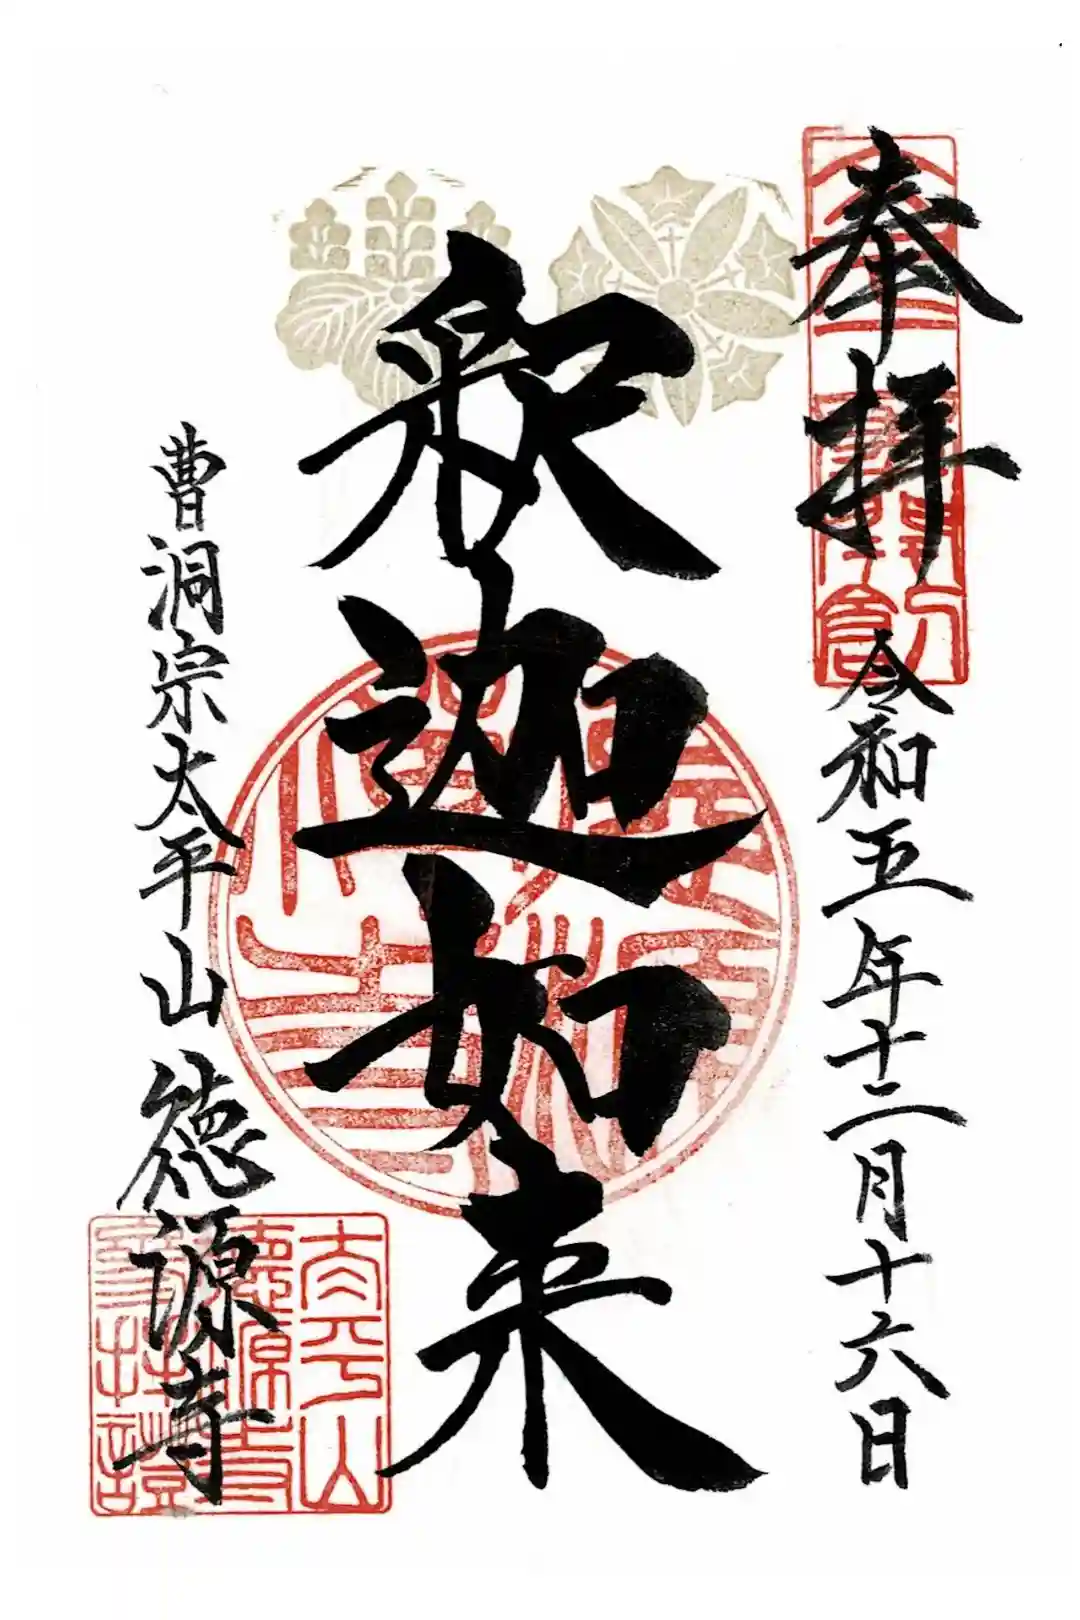 奉拝
令和五年十二月十六日
釈迦如来
曹洞宗太平山
徳源寺